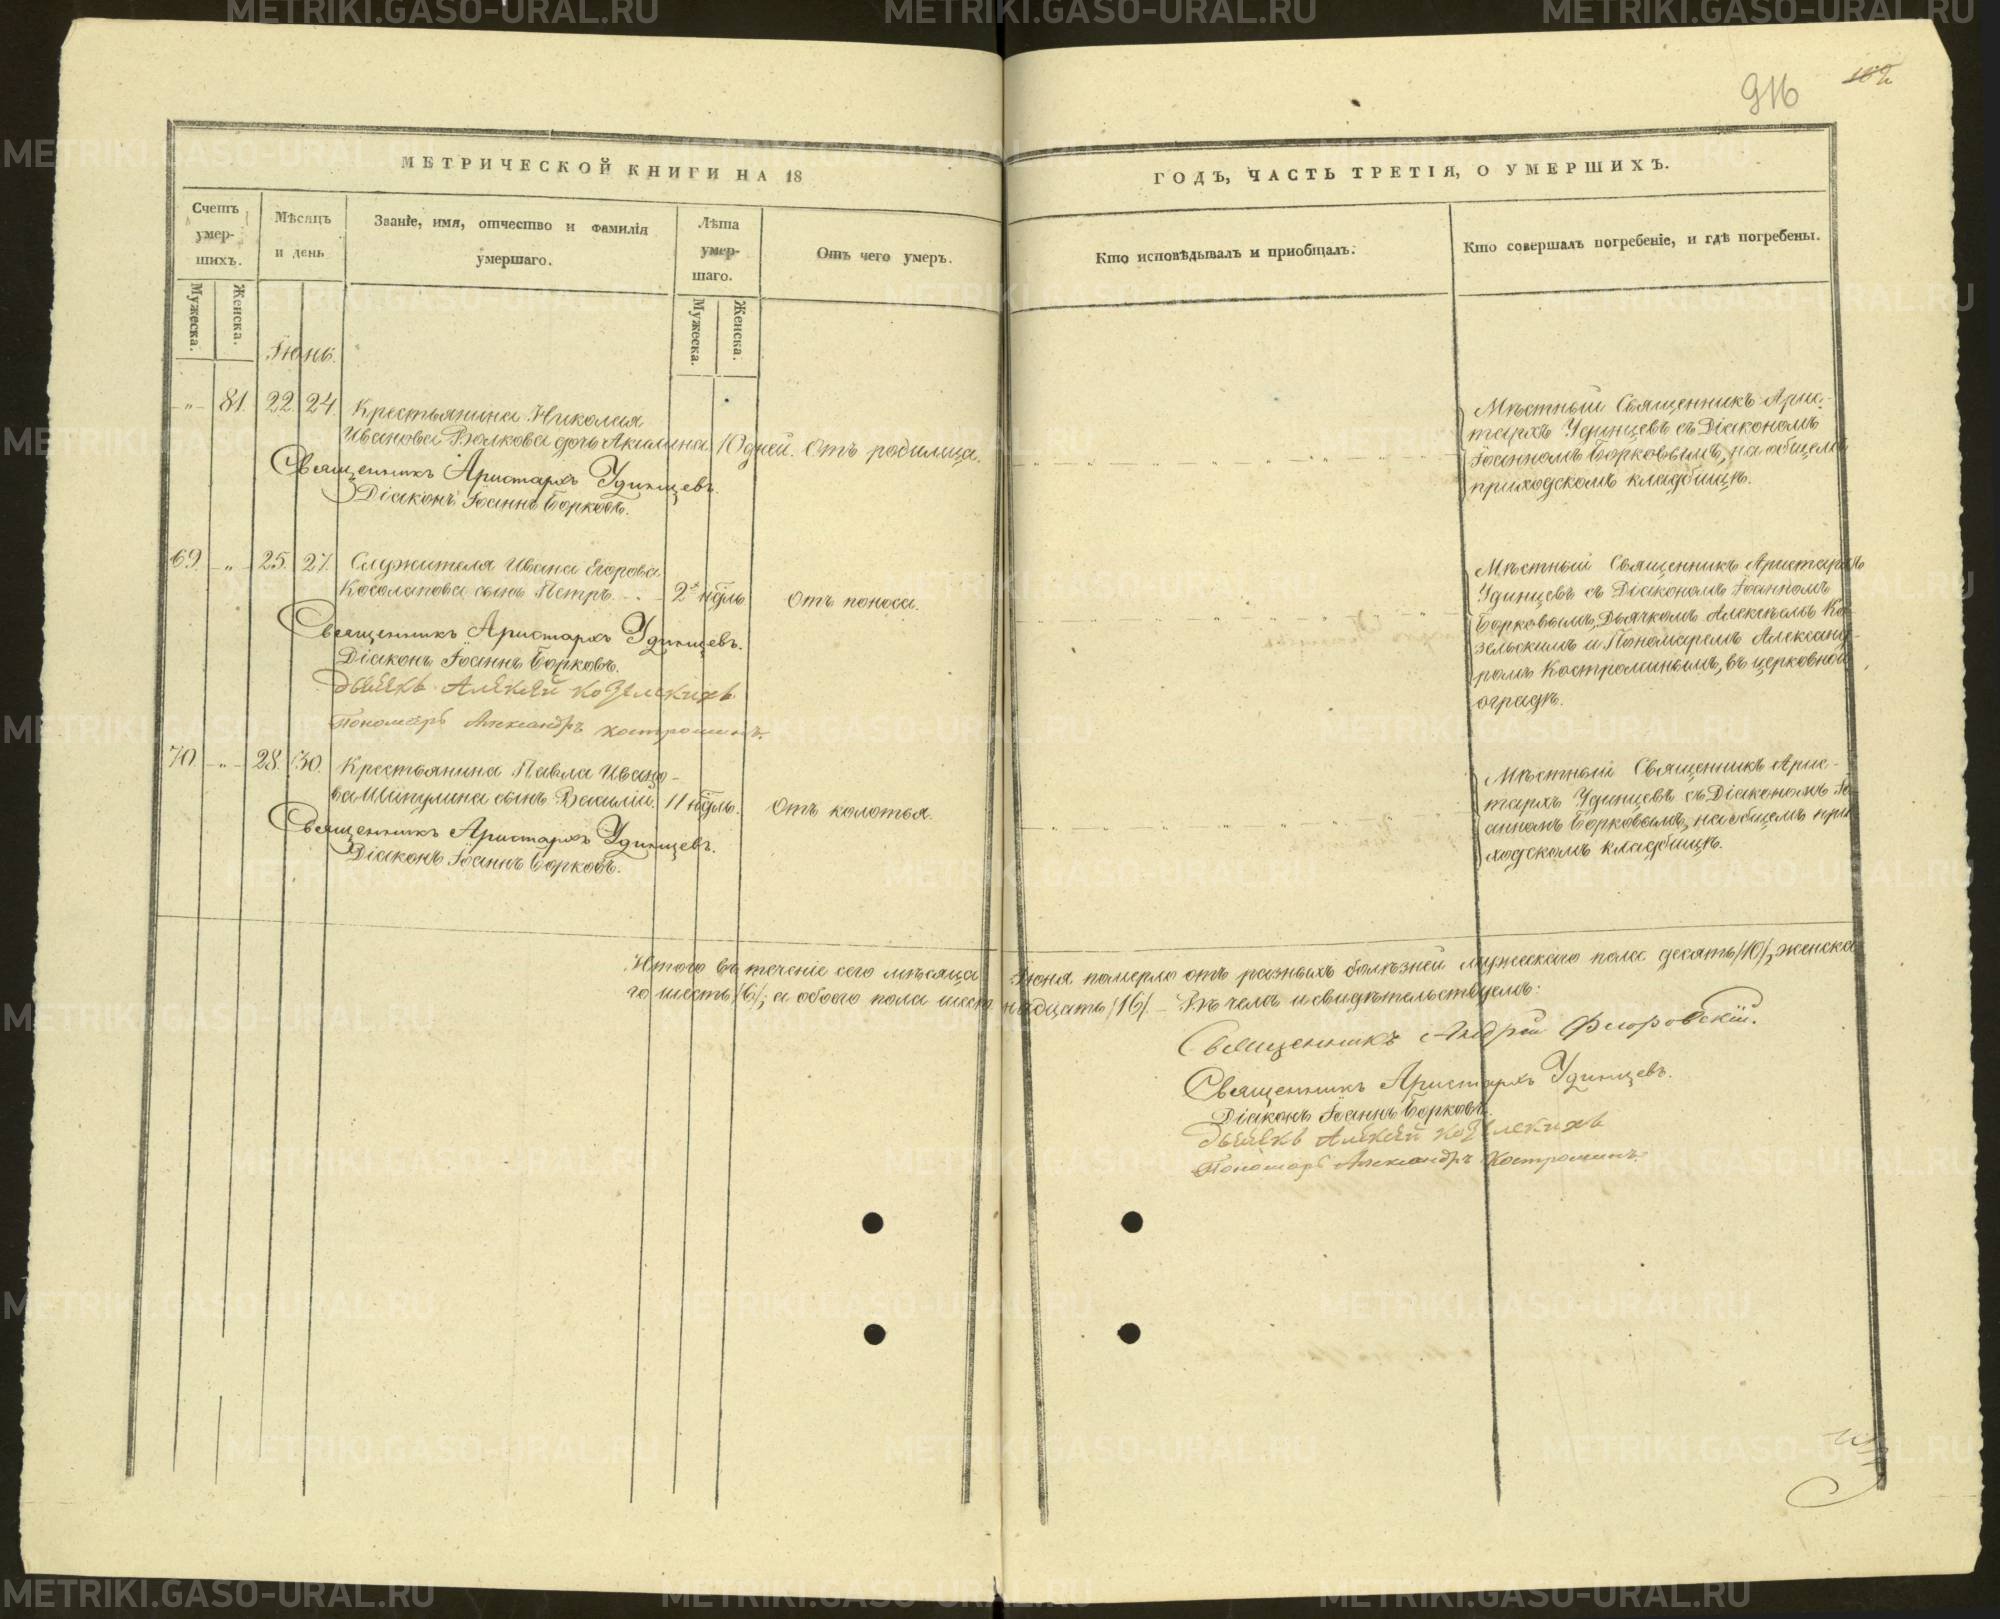 916
182
МЕТРИЧЕСКОЙ КНИГИ НА 18
ГОДЪ, ЧАСТЬ ТРЕТІЯ, О УМЕРШИХЪ.
Счетъ умер-шихъ.
Мѣсяцъ и день
Званіе, имя, отчество и фамилія умершаго.
Лѣта умер-шаго.
Отъ чего умеръ.
Кто исповѣдывалъ и пріобщалъ.
Кто совершалъ погребеніе, и гдѣ погребены.
Мужеска.
Женска.
Мужеска.
Женска.
Іюнь.
81. 22. 24. Крестьянина Николая
Иванова Волкова дочь Акилина. 10 дней. Отъ родимца.
Священникъ Аристархъ Удинцевъ.
Діаконъ Іоаннъ Борковъ.
Мѣстный Священникъ Арис-
тархъ Удинцевъ съ Діакономъ
Іоанномъ Борковымъ, на общемъ
приходскомъ кладбищѣ.
69. 25. 27. Служителя Ивана Егорова
Косолапова сынъ Петръ. 2 нѣдль Отъ поноса.
Священникъ Аристархъ Удинцевъ.
Діаконъ Іоаннъ Борковъ.
дьячекъ Алексей козелскихъ
Пономарь Александръ костроминъ.
Мѣстный Священникъ Аристархъ
Удинцевъ съ Діакономъ Іоанномъ
Борковымъ, Дьячкомъ Алексѣемъ Ко-
зельскимъ и Пономаремъ Александ-
ромъ Костроминымъ, въ церковной
оградѣ.
70. 28. 30. Крестьянина Павла Ивано-
ва Шипулина сынъ Василій. 11 нѣдль. Отъ колотья.
Священникъ Аристархъ Удинцевъ.
Діаконъ Іоаннъ Борковъ.
Мѣстный Священникъ Арис-
тархъ Удинцевъ съ Діакономъ Іо-
анномъ Борковымъ, на общемъ при
ходскомъ кладбищѣ.
Итого въ теченіе сего мѣсяца Іюня померло отъ разныхъ болѣзней мужескаго пола десять /10/, женска
го шесть /6/; а обоего пола шестнадцать /16/. – Въ чемъ и свидѣтельствуемъ:
Священникъ Андрей Флоровскій.
Священникъ Аристархъ Удинцевъ.
Діаконъ Іоаннъ Борковъ.
дьячекъ Алексей козелскихъ
Пономарь Александръ Костроминъ.
METRIKI.GASO-URAL.RU